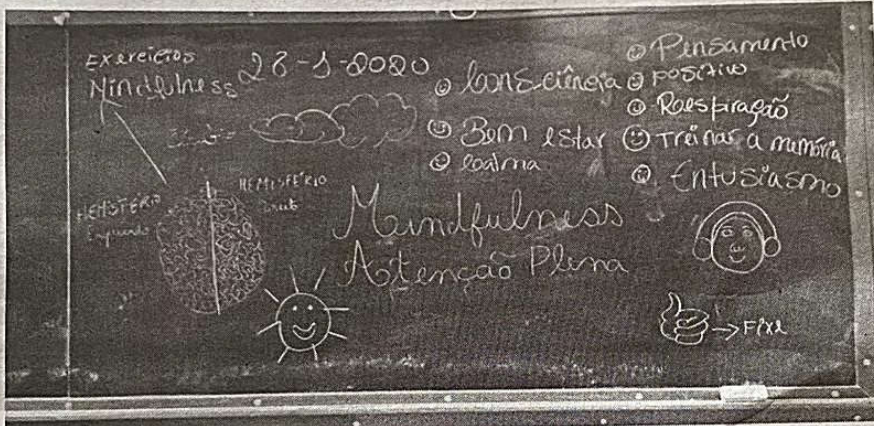 Exercicios
Mindfulness
28-1-2020
Consciência
Bem estar
Calma
Pensamento
positivo
Raespiração
Treinar a memória
Entusiasmo
HEMISFÉRIO
Esquerdo
HEMISFÉRIO
Mundfulness
Atenção Plena
Fixe